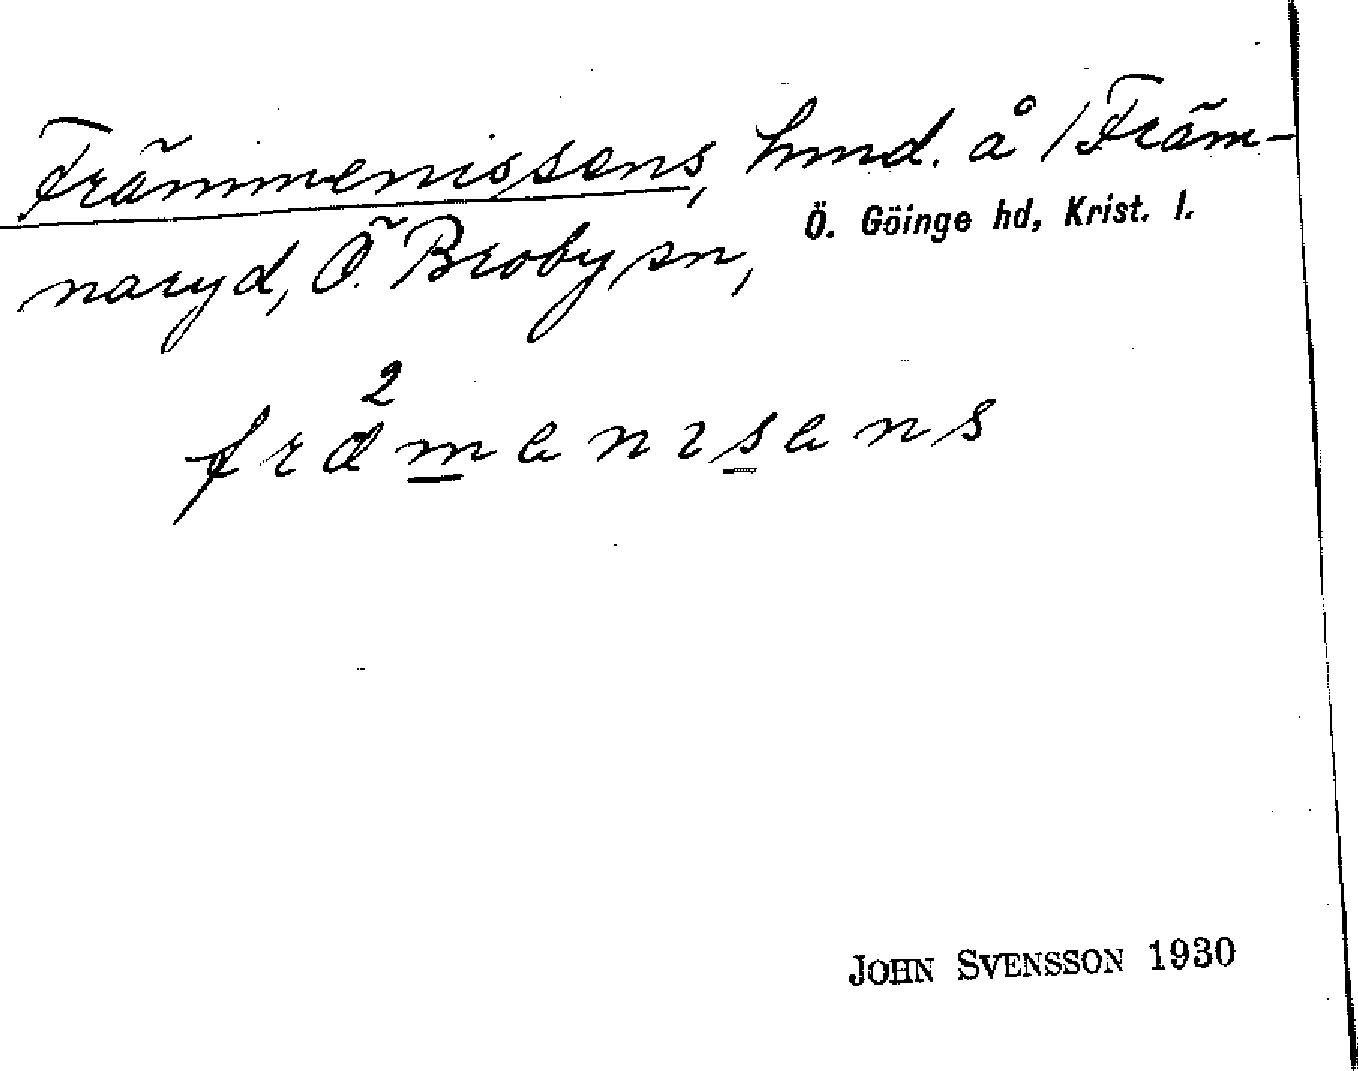 Främmenissens, hmd. å /Främ-
naryd, Ö. Broby sn, Ö. Göinge hd, Krist. l.
2
främenisens
JOHN SVENSSON 1930